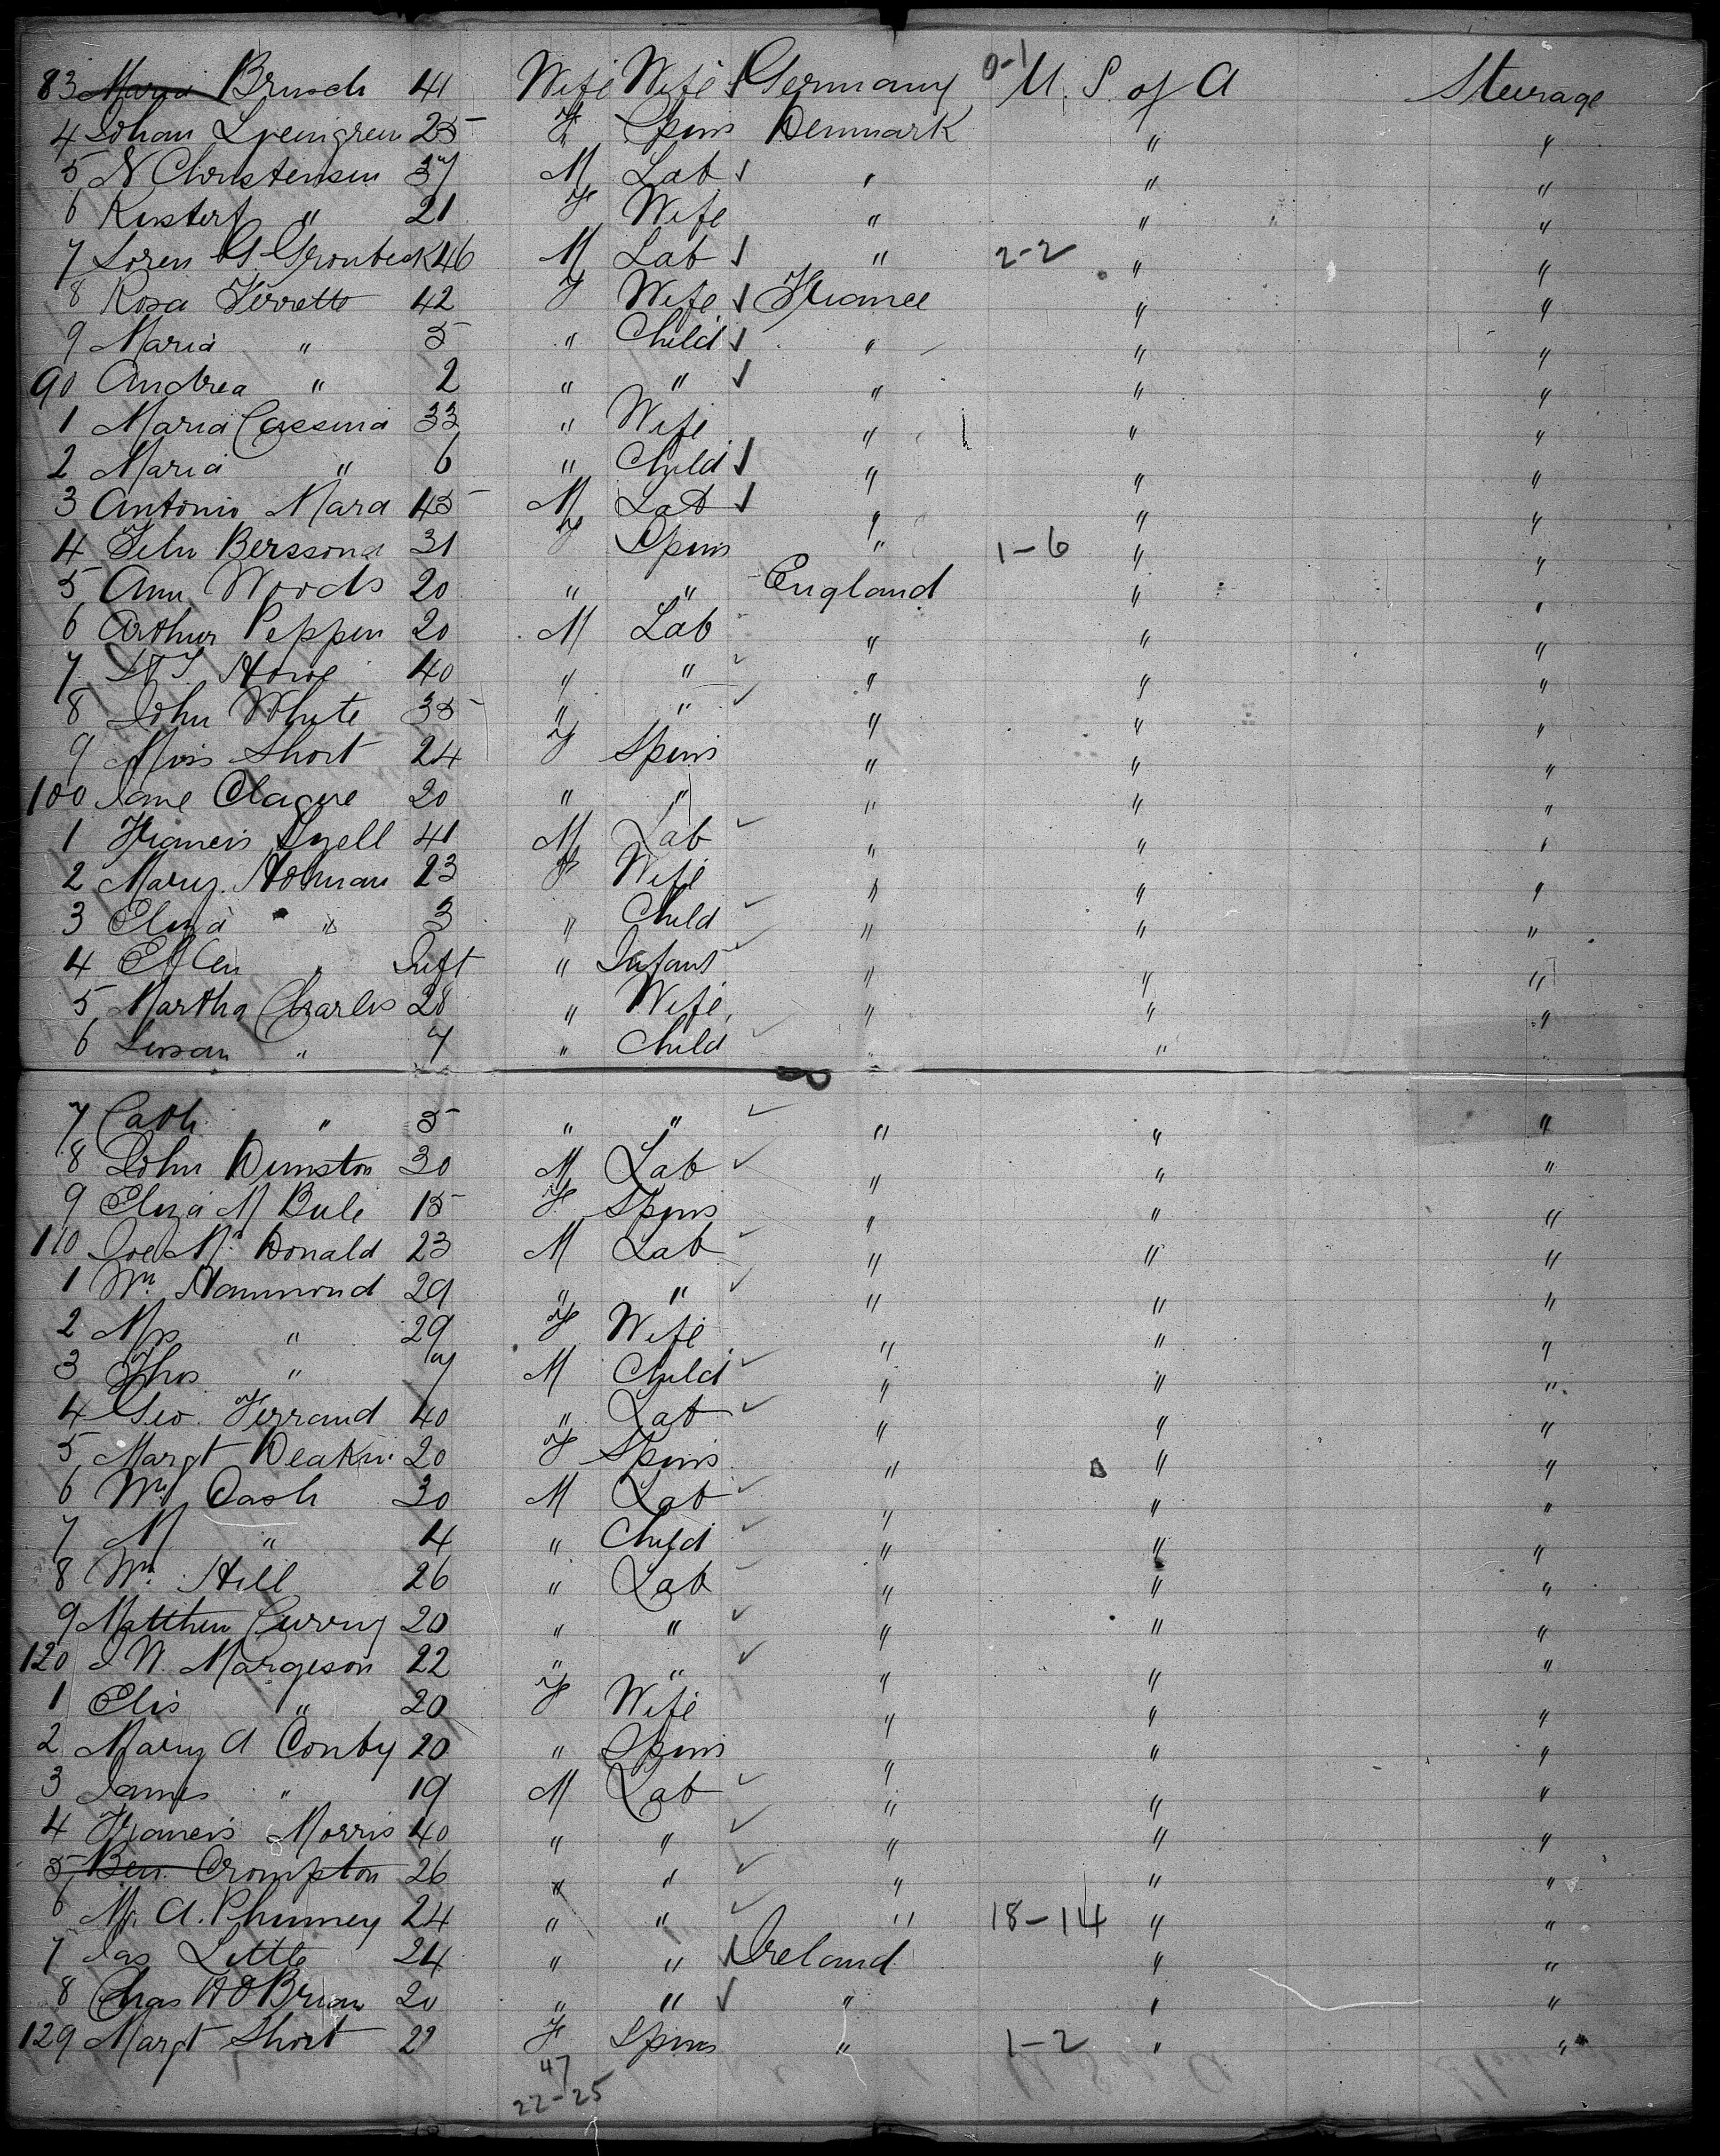 83 Maria Brusch 41 Wife Wife Germany 0-1 U. S. of A Steerage
4 Johan 25 F Spins Denmark " "
5 N Christensen 37 M Lab " " "
6 " 21 F Wife " " "
7 Soren G Gronbeck 46 M Lab " 2-2 " "
8 Rosa Ferretto 42 F Wife France " "
9 Maria " 5 " Child " " "
90 Andrea " 2 " " " " "
1 Maria Cassina 33 " Wife " " "
2 Maria " 6 " Child " " "
3 Antonio Mara 45 M Lab " " "
4 Berssona 31 F Spins " 1-6 " "
5 Ann Woods 20 " " England " "
6 Arthur Peppin 20 M Lab " " "
7 Howe 40 " " " " "
8 John White 35 " " " " "
9 Miss Short 24 F Spins " " "
100 Jane Clague 20 " " " " "
1 Francis Lyell 41 M Lab " " "
2 Mary Holman 23 F Wife " " "
3 Eliza " 3 " Child " " "
4 Ellen " Inft " Infant " " "
5 Martha Charles 28 " Wife " " "
6 Susan " 7 " Child " " "
7 Cath " 5 " " " " "
8 John Dunston 30 M Lab " " "
9 Eliza M Bule 15 F Spins " " "
110 Joe Mc Donald 23 M Lab " " "
1 Wm Hammond 29 " " " " "
2 Mrs " 29 F Wife " " "
3 Thos " 7 M Child " " "
4 Geo. Ferrand 40 " Lab " " "
5 Margt Deakin 20 F Spins " " "
6 Wm Cash 30 M Lab " " "
7 M " 4 " Child " " "
8 Wm Hill 26 " Lab " " "
9 Matthew Curry 20 " " " " "
120 J W. Margeson 22 " " " " "
1 Elis " 20 F Wife " " "
2 Mary A Conby 20 " Spins " " "
3 James " 19 M Lab " " "
4 Francis Morris 40 " " " " "
5 Ben. Crompton 26 " " " " "
6 Mr. A. Phinney 24 " " " 18-14 " "
7 Jas Little 24 " " Ireland " "
8 Chas H O'Brian 20 " " " " "
129 Margt Short 22 F Spins " 1-2 " "
47
22-25